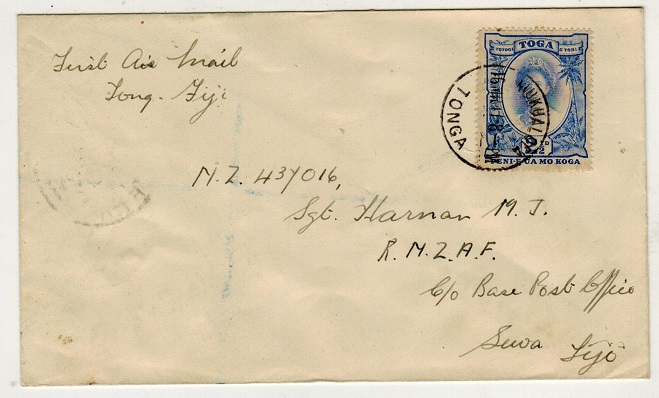 First Air Mail
Tong - Fiji
TOGA
TOTOGI
E TOHI
2½D
PENI-E UA MO KOGA
NUKUALOFA
TONGA
N.Z. 437016,
Sgt. Harnan M. J.
R. N. Z. A. F.
C/o Base Post Office
Suva Fiji